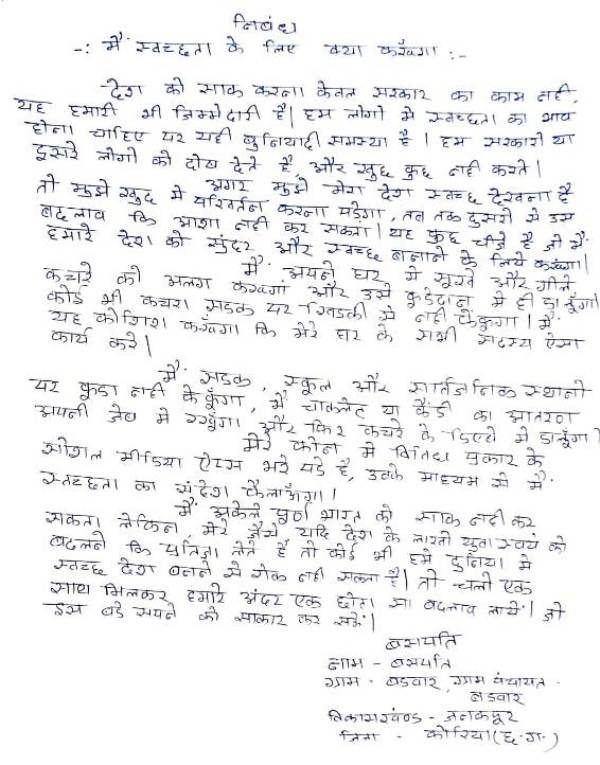 निबंध
-: मैं स्वच्छता के लिए क्या करूँगा :-
देश को साफ करना केवल सरकार का काम नही,
यह हमारी भी जिम्मेदारी है| हम लोगो मे स्वच्छता का भाव
होना चाहिए पर यही बुनियादी समस्या है | हम सरकारी या
दूसरे लोगो को दोष देते है और खुद कुछ नही करते |
अगर मुझे मेरा देश स्वच्छ देखना है
तो मुझे खुद मे परिवर्तन करना पड़ेगा, तब तक दुसरो से उस
बदलाव कि आशा नही कर सकता| यह कुछ चीजे है जो मैं
हमारे देश को सुंदर और स्वच्छ बनाने के लिये करूंगा|
मैं अपने घर मे सूखे और गीले
कचरे को अलग करूंगां और उसे कूडेदान मे ही डालूँगा|
कोई भी कचरा सड़क पर खिडकी से नही फेंकुगा | मैं
यह कोशिश करूंगा कि मेरे घर के सभी सदस्य ऐसा
कार्य करे |
मैं सड़क, स्कूल और सार्वजनिक स्थानो
पर कुडा नही फेकूँगा, मैं चाकलेट या कैंडी का आवरण
अपनी जेब मे रखूँगा और फिर कचरे के डिब्बे मे डालूँगा|
मेरे फोन मे विभिन्न प्रकार के
सोशल मीडिया ऐप्स भरे पडे है, उनके माध्यम से मैं
स्वच्छता का संदेश फैलाऊँगा |
मैं अकेले पूर्ण भारत को साफ नही कर
सकता लेकिन मेरे जैसे यदि देश के लाखो युवा स्वयं को
बदलने कि प्रतिज्ञा लेते है तो कोई भी हमे दुनिया मे
स्वच्छ देश बनने से रोक नही सकता है| तो चलो एक
साथ मिलकर हमारे अंदर एक छोटा सा बदलाव लायें| जो
इस बडे सपने को साकार कर सकें|
बसपति
नाम - बसपति
ग्राम - बडवार, ग्राम पंचायत -
बडवार
विकासखंण्ड - जनकपूर
जिला - कोरिया (छ.ग.)